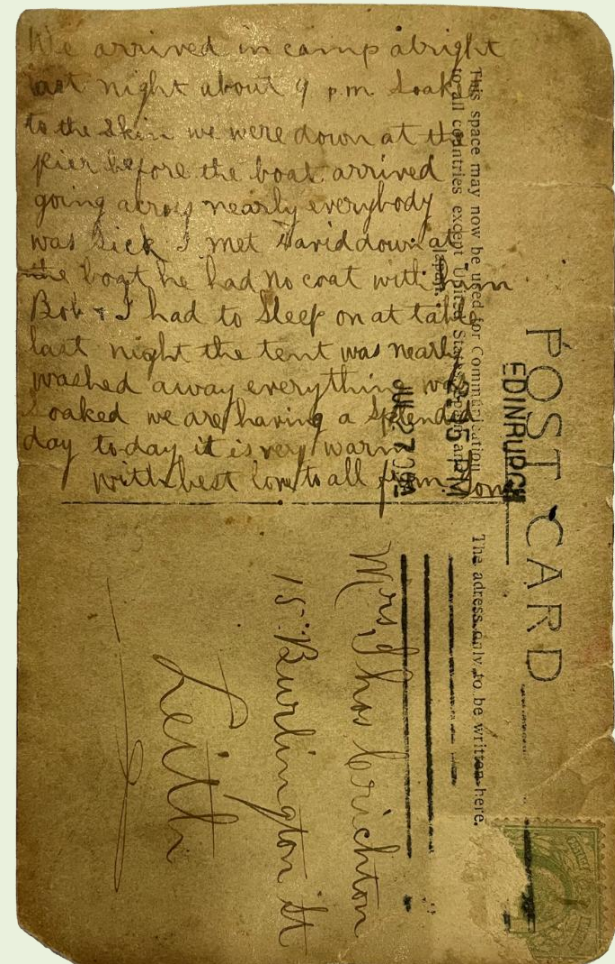 We arrived in camp alright
last night about 9 p.m. Soaked
to the Skin we were down at the
pier before the boat arrived
going across nearly everybody
was sick I met David down at
the boat he had no coat with him
Bob & I had to Sleep on at table
last night the tent was nearly
washed away everything was
Soaked we are having a Splendid
day today it is very warm
with best love to all from
POST CARD
This space may now be used for Communication
to all countries except United States
The adress only to be written here.
EDINBURGH
2.15 PM
JUL 27
Mrs Thos Crichton
15 Burlington St
Leith